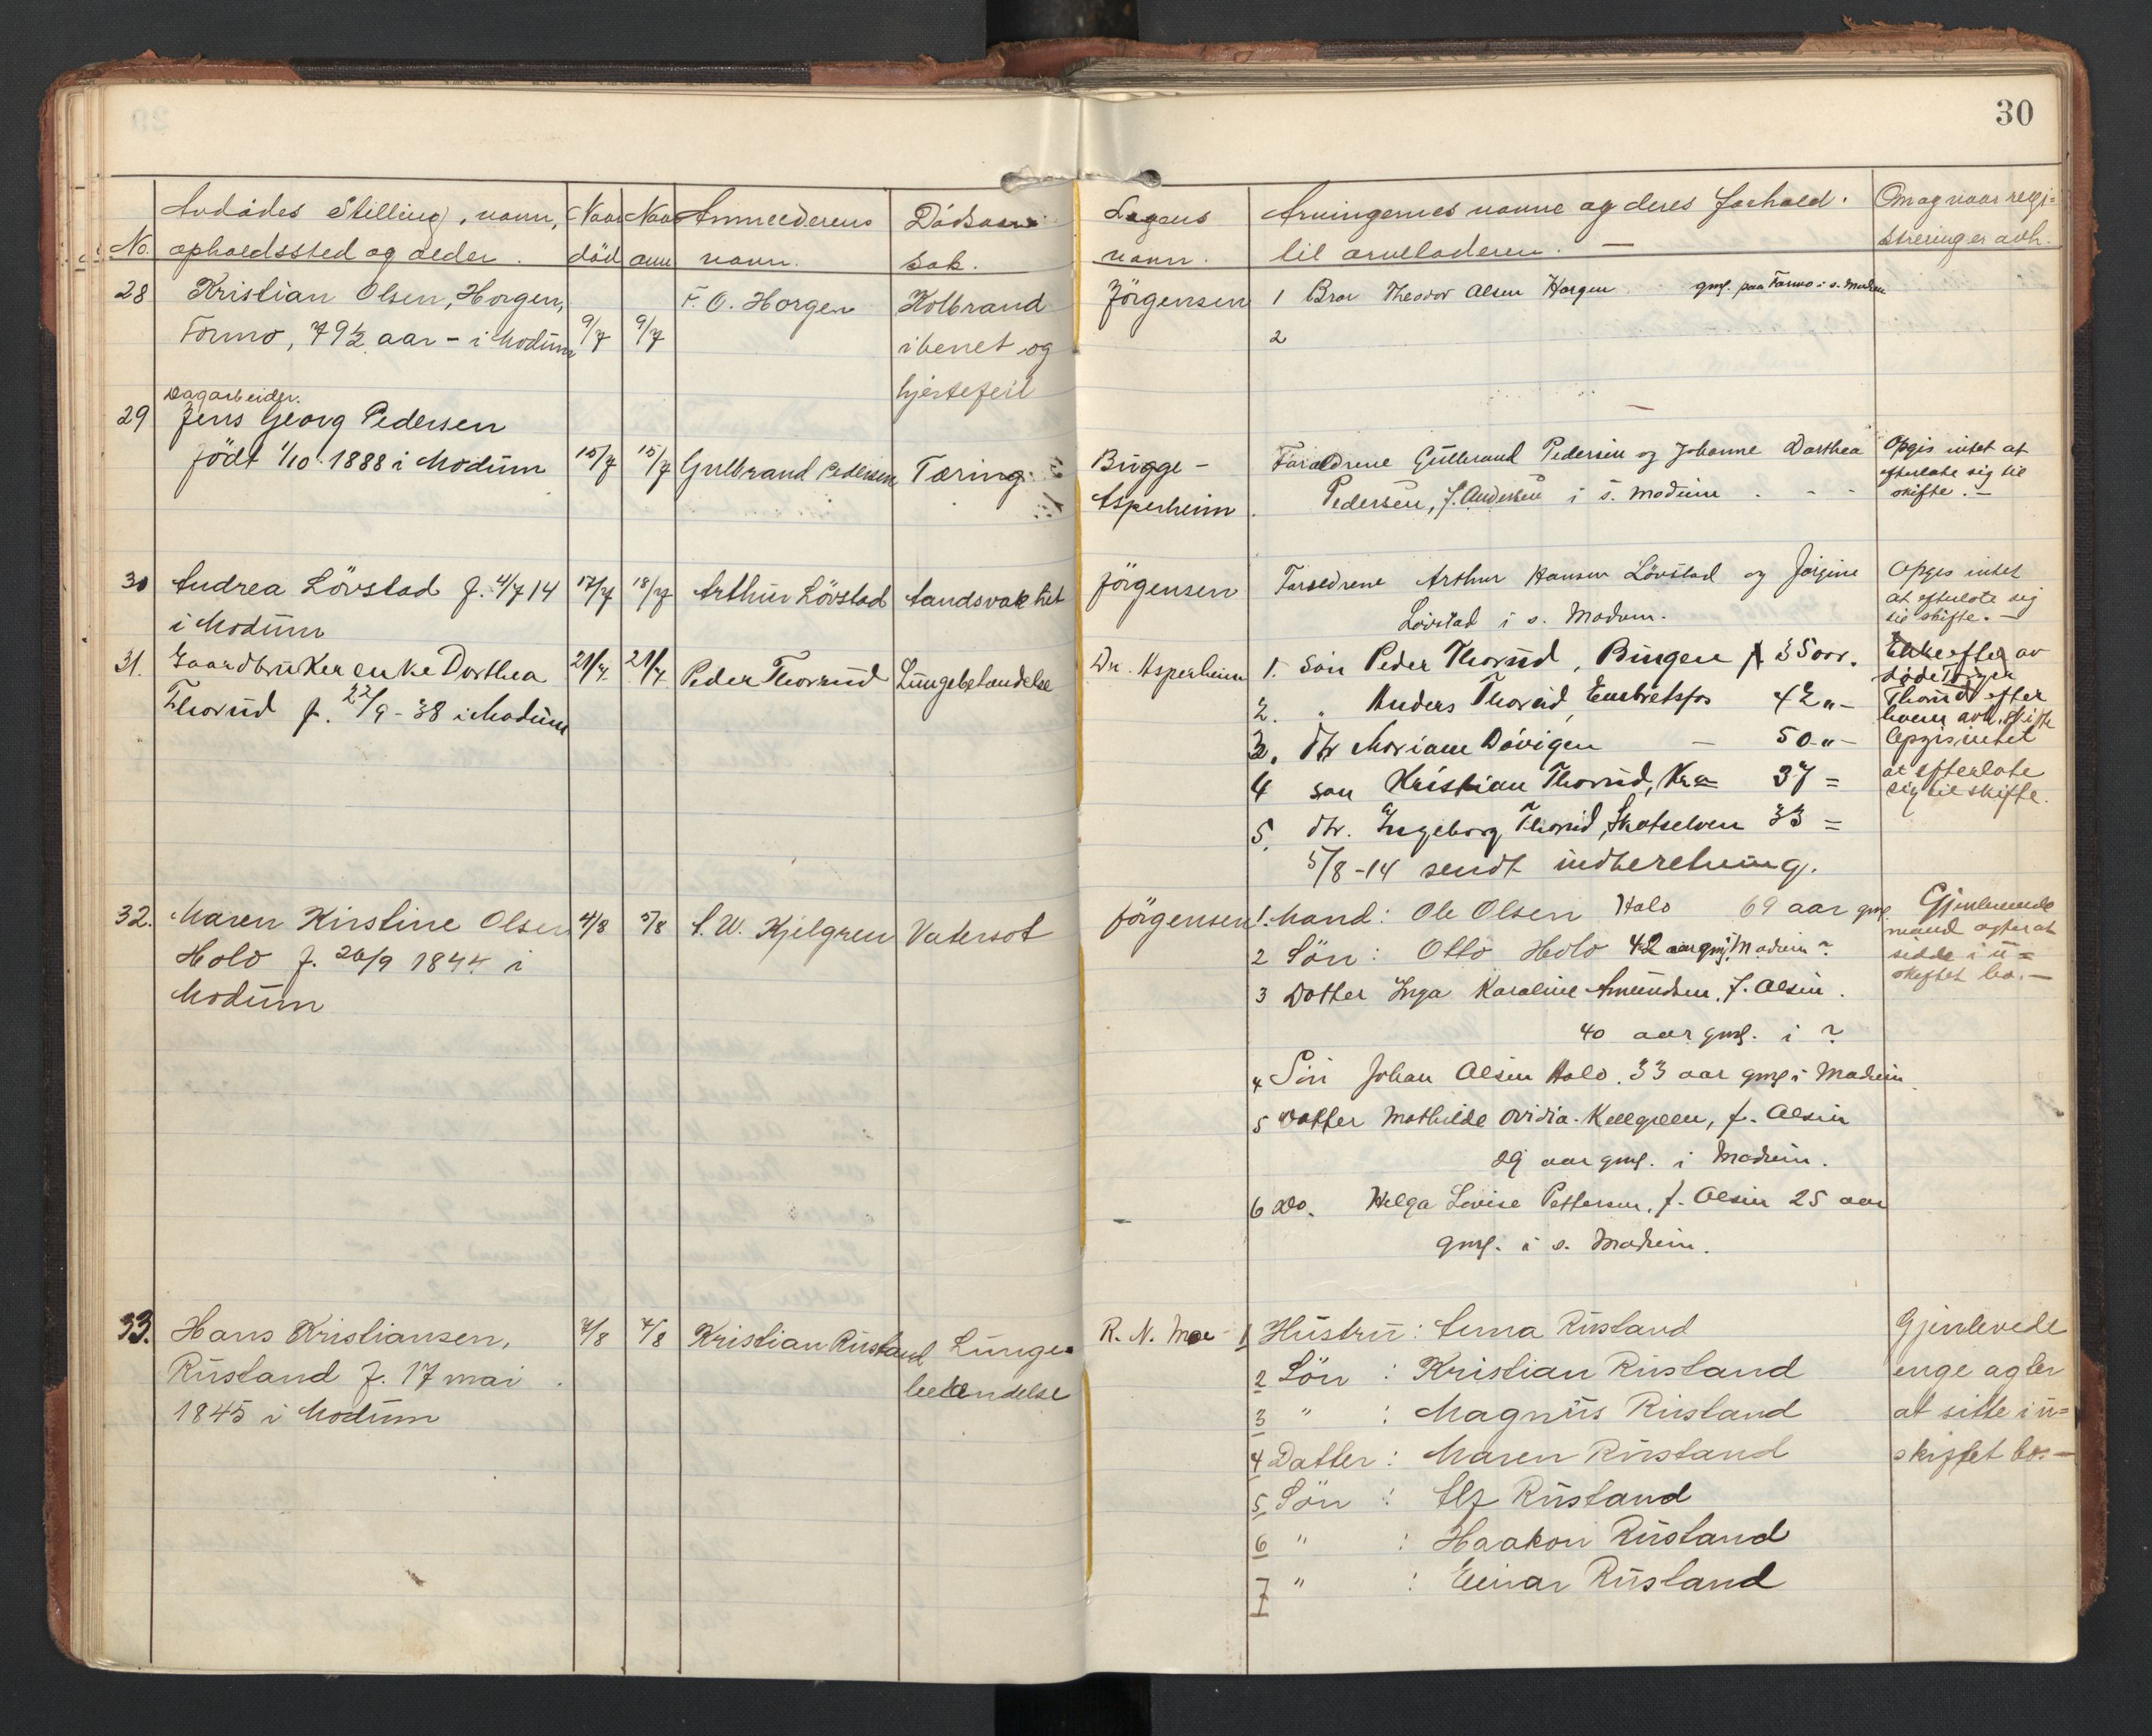 30
No. Avdødes Stilling, navn, opholdssted og alder. Naar død Naar anm Anmelderens navn. Dødsaarsak. Lægens navn. Arvingernes navne og deres forhold til arveladeren. — Om og naar registrering er avh.
28 Kristian Olsen, Horgen, F. O. Horgen Kolbrand Jörgensen 1 Bror Theodor Olsen Horgen gmf. paa Formo i s. Modum
Formo, 79½ aar - i Modum 9/7 9/7 i benet og 2
hjertefeil
Dagarbeider.
29 Jens Georg Pedersen
född 1/10 1888 i Modum 15/7 15/7 Gulbrand Pedersen Tæring. Bugge - Forældrene Gulbrand Pedersen og Johanne Dorthea Opgis intet at
Asperheim. Pedersen, f. Andersen i s. Modum. - - efterlate sig til
skifte. —
30 Andrea Lövstad f. 4/7 14 17/7 18/7 Arthur Lövstad Aandsvakhet Jörgensen Forældrene Arthur Hansen Lövstad og Jörgine Opgis intet
i Modum Lövstad i s. Modum. at efterlate sig
til skifte. —
31. Gaardbrukerenke Dorthea 21/7 21/7 Peder Thorud Lungebetændelse Dr. Asperheim 1. Sön Peder Thorud, Bingen 35 aar. Enke efter av
Thorud f. 22/9 - 38 i Modum döde
2. " Anders Thorud, Embretsfos 42 " - Thorud efter
hvem avh. skifte
3. dtr Mariane Dövigen — 50 " - Opgis intet
4 sön Kristian Thorud, Kra 37 = at efterlate
sig til skifte.
5. dtr. Ingeborg Thorud, Skotselven 33 =
5/8 -14 sendt indberetning.
32. Maren Kirstine Olsen 4/8 5/8 A. W. Kjelgren Vatersot Jörgensen 1. Mand: Ole Olsen Holo 69 aar gml. Gjenlevende
Holo f. 26/9 1844 i 2 Sön: Otto Holo 42 aar gml Modum? mand agter at
Modum 3 Dotter Inga Karoline Amundsen, f. Olsen. sidde i u=
skiftet bo. —
40 aar gml. i ?
4 Sön Johan Olsen Holo. 33 aar gml i Modum
5 Dotter Mathilde Ovidia Kellgreen, f. Olsen
29 aar gml. i Modum.
6 Do. Helga Lovise Pettersen, f. Olsen 25 aar
gml. i s. Modum.
33. Hans Kristiansen, 7/8 7/8 Kristian Rustand Lunge= R. N. Moe 1 Hustru: Anna Rustand Gjenlevede
Rustand f. 17 mai betændelse 2 Sön : Kristian Rustand enge agter
1845 i Modum 3 " : Magnus Rustand at sitte i u=
4 Datter: Maren Rustand skiftet bo. —
5 Sön : Alf Rustand
6 " : Haakon Rustand
7 " : Einar Rustand